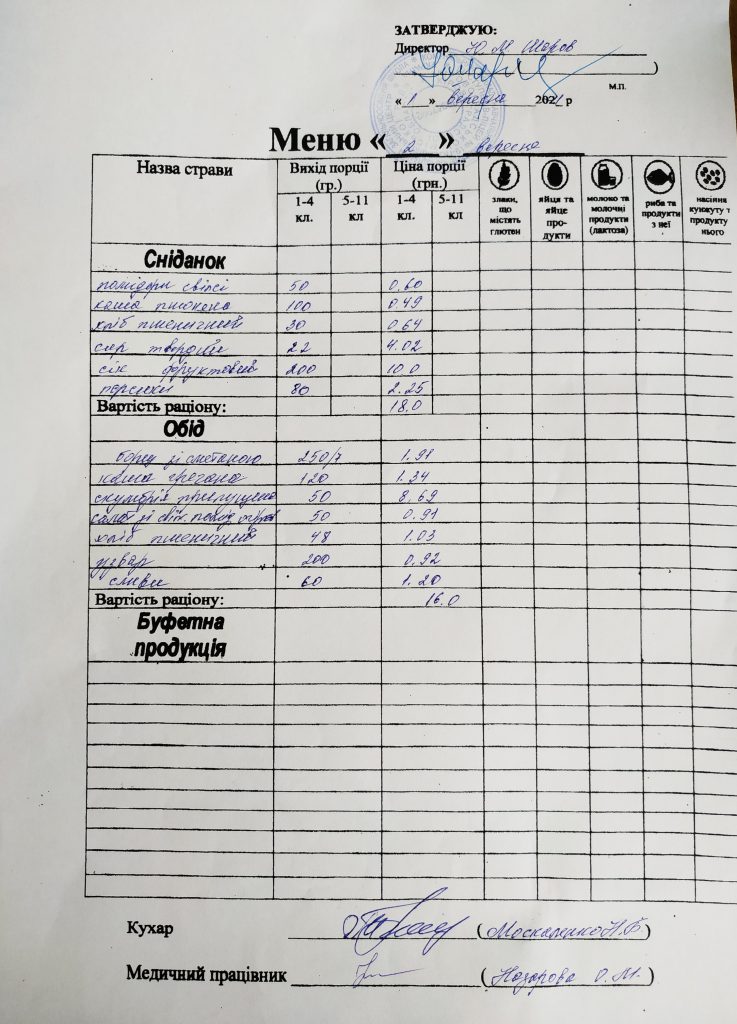 ЗАТВЕРДЖУЮ:
Директор Ю. М. Шаров
)
м.п.
« 1 » вересня 2021 р
Меню « 2 » вересня
Назва страви Вихід порції (гр.) Ціна порції (грн.)
1-4 кл. 5-11 кл 1-4 кл. 5-11 кл
злаки, що містять глютен
яйця та яйце про- дукти
молоко та молочні продукти (лактоза)
риба та продукти з неї
насіння кунжуту т продукту нього
Сніданок
помідори свіжі 50 0.60
каша пшоняна 100 0.49
хліб пшеничний 30 0.64
сир твердий 22 4.02
сік фруктовий 200 10.0
персики 80 2.25
Вартість раціону: 18.0
Обід
борщ зі сметаною 250/7 1.98
каша гречана 120 1.34
скумбрія припущена 50 8.69
салат зі свіж. помід. огірків 50 0.91
хліб пшеничний 48 1.03
узвар 200 0.92
сливи 60 1.20
Вартість раціону: 16.0
Буфетна
продукція
Кухар ( Москаленко Н.Б )
Медичний працівник ( Назарова О.М. )